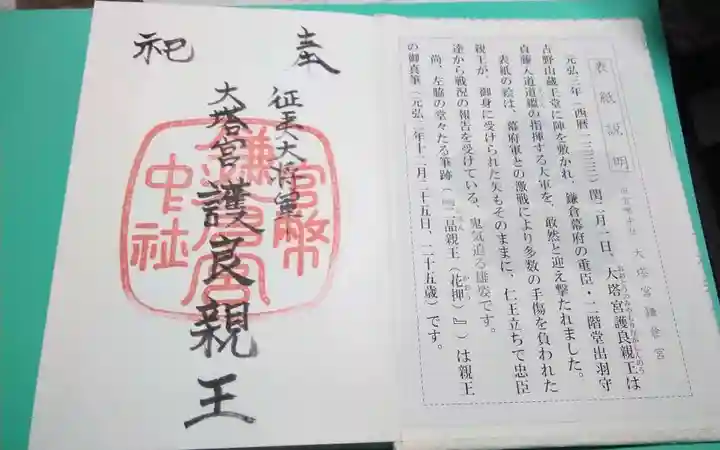 表紙説明
大塔宮鎌倉宮
元弘三年(西暦一三三三)閏二月一日、大塔宮護良親王は
吉野山蔵王堂に陣を敷かれ、鎌倉幕府の重臣・二階堂出羽守
貞藤入道道蘊の指揮する大軍を、敢然と迎え撃たれました。
表紙の絵は、幕府軍との激戦により多数の手傷を負われた
親王が、御身に受けられた矢もそのままに、仁王立ちで忠臣
達から戦況の報告を受けている、鬼気迫る雄姿です。
尚、左脇の堂々たる筆跡(『二品親王(花押)』)は親王
の御真筆(元弘二年十二月二十五日、二十五歳)です。
奉
祀
征夷大将軍
大塔宮
護良親王
官幣
鎌倉宮
中社